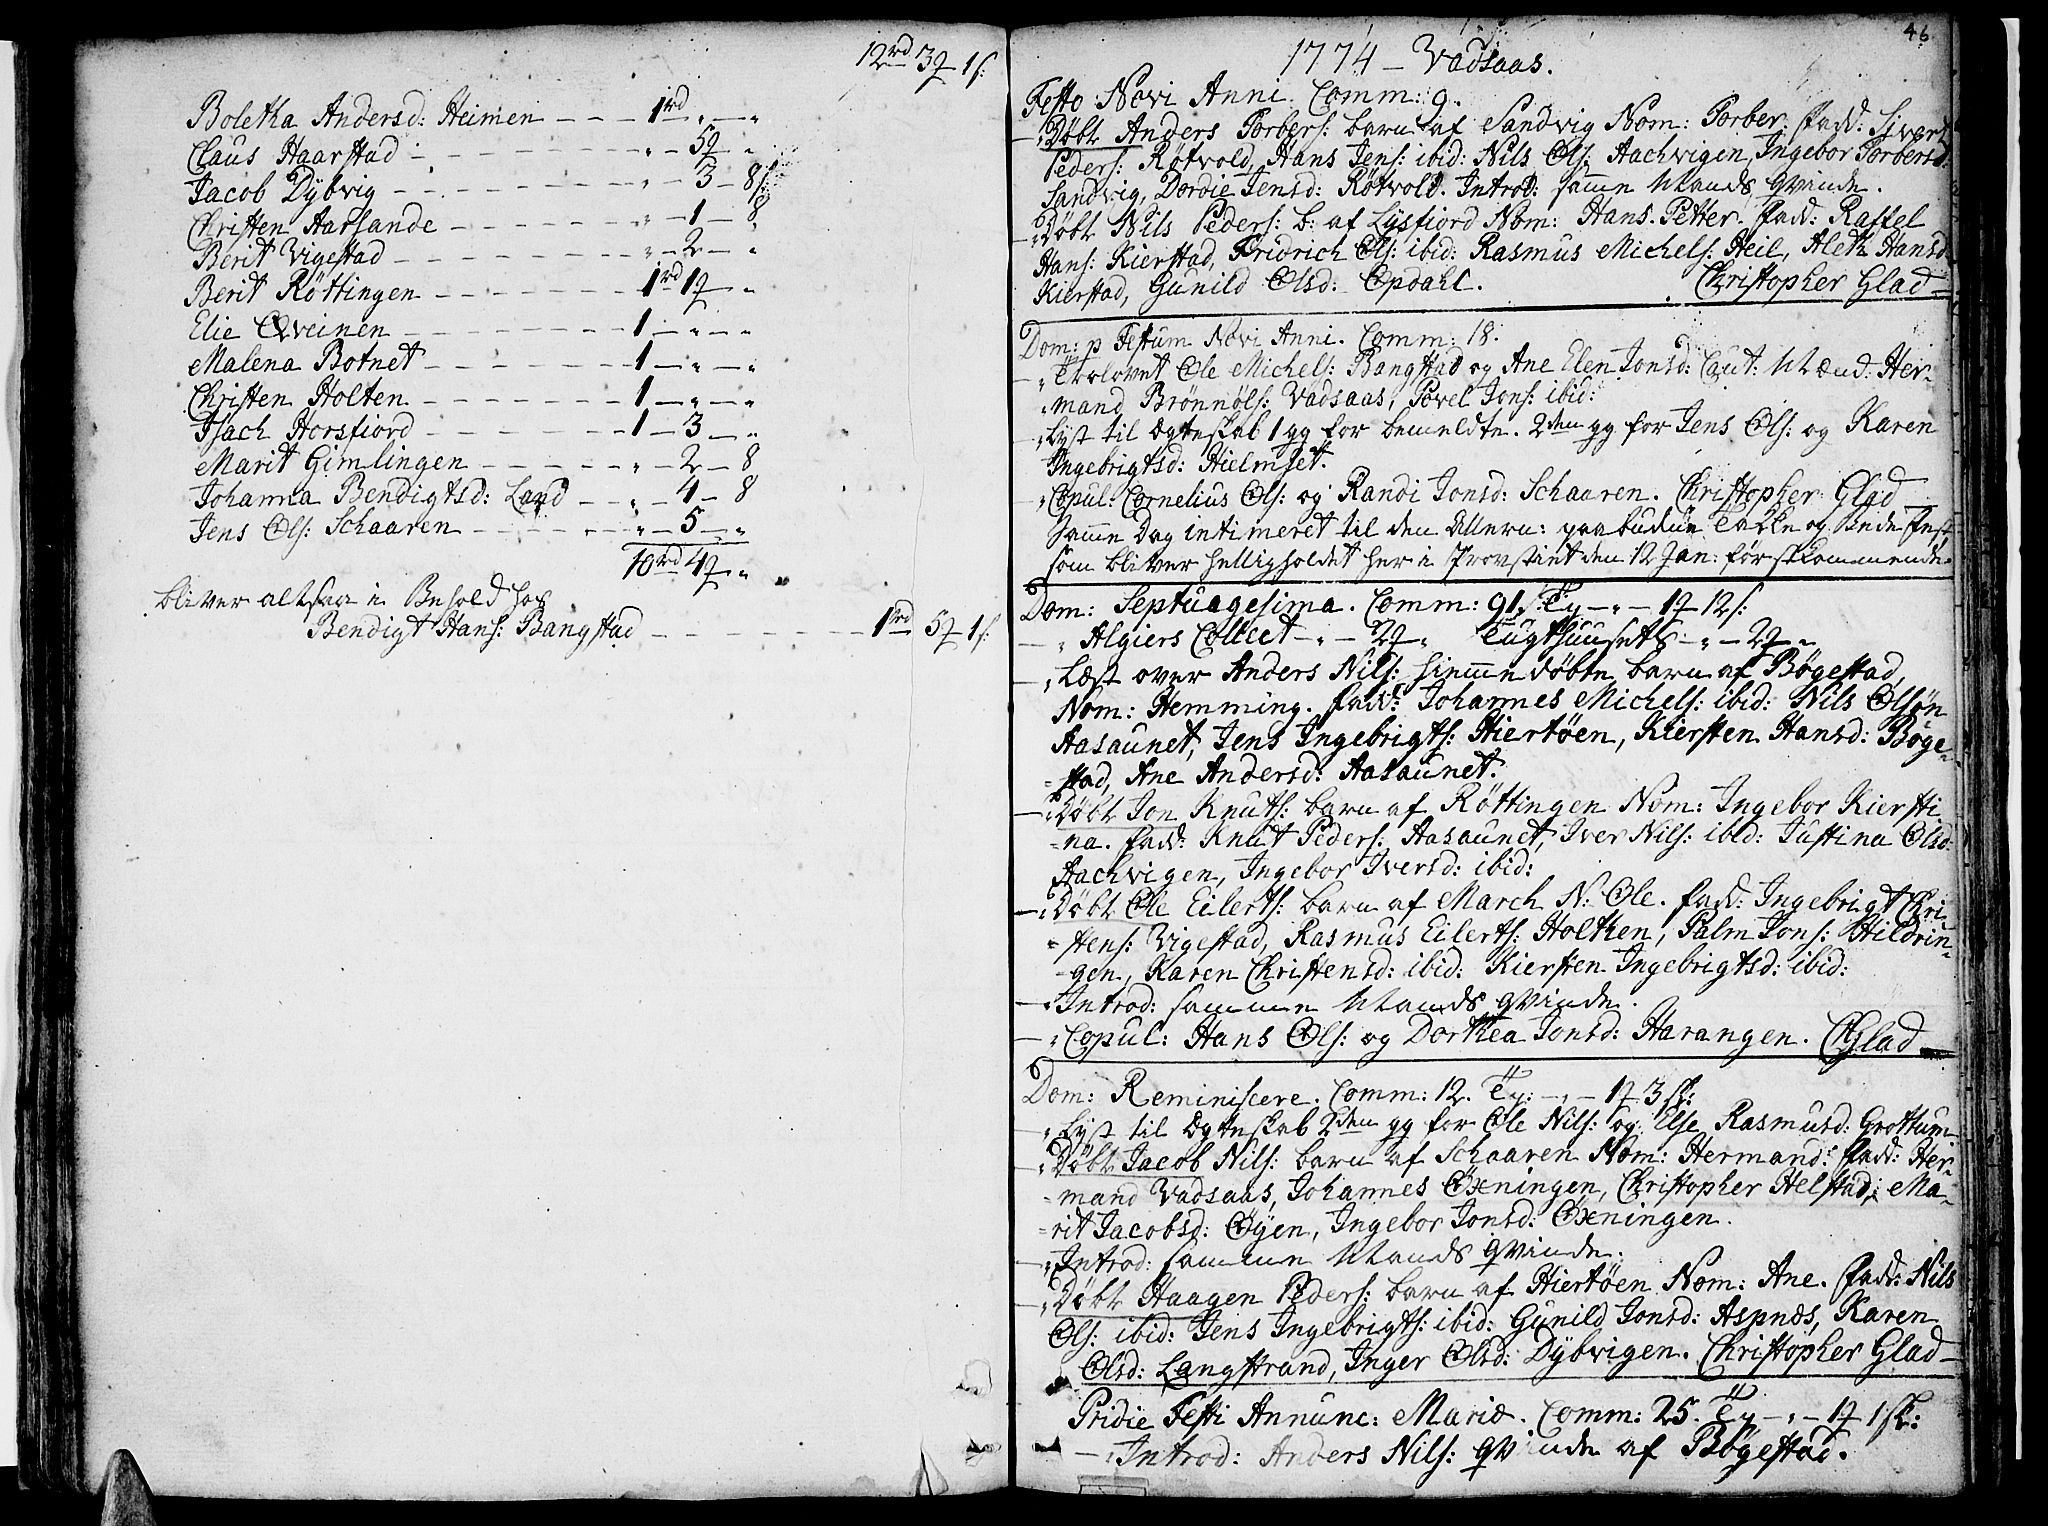 12rd 3q 1s:
Boletha Andersd: Heimen - - - 1rd „ - „
Claus Haarstad - - - „ - 5q „
Jacob Dybvig - - - „ - 3 - 8s:
Christen Aarsande - - - „ - 1 - 8
Berit Vigestad - - - „ - 2 - „
Berit Röttingen - - - 1rd 1q „
Elie Qveinen - - - 1 - „ - „
Malena Botnet - - - 1 - „ - „
Christen Holten - - - 1 - „ - „
Isach Horsfiord - - - 1 - 3 - „
Marit Gimlingen - - - „ - 2 - 8
Johanna Bendigtsd: Land - - „ - 4 - 8
Jens Ols: Schaaren - - - „ - 5 - „
10rd 4q „
bliver altsaa i Behold hos
Bendigt Hans: Bangstad - - - 1rd 5q 1s:
46
1774 - Vadsaas.
Festo Novi Anni. Comm: 9.
Döbt Anders Torbers: barn af Sandvig Nom: Torber. fadd: Sivert
Peders: Rötvold, Hans Jens: ibid: Nils Ols: Aachvigen, Ingebor Torbersd:
Sandvig, Dordie Jensd: Rötvold. Introd: samme Mands Qvinde.
Döbt Nils Peders: b: af Lysfiord Nom: Hans. Petter. fadd: Raffel
Hans: Kierstad, Fridrich Ols: ibid: Rasmus Michels: Heil, Aleth Hansd:
Kierstad, Gunild Olsd: Opdahl. Christopher Glad
Dom: p Festum Novi Anni. Comm: 18.
„ Trolovet Ole Michels: Bangstad og Ane Elen Jonsd: Caut: Mænd: Her-
mand Brønnöls: Vadsaas, Povel Jons: ibid:
„ Lyst til Ægteskab 1 gg for bemeldte. 2den gg for Jens Ols: og Karen
Ingebrigtsd: Hielmset.
„ Copul: Cornelius Ols: og Randi Jonsd: Schaaren. Christopher Glad
Samme Dag intimeret til den Allern: paabudne Takke og Bede fest,
som bliver helligholdet her i Provstiet den 12 Jan: førstkommende.
Dom: Septuagesima. Comm: 91. - „ - 1q 12s:
„ Algiers Collect - „ - 2q „ Tugthuusets - „ - 2q „
„ Læst over Anders Nils: hiemmedöbte barn af Bögestad,
Nom: Hemming. fadd: Johannes Michels: ibid: Nils Olsön
Aasaunet, Jens Ingebrigts: Hiertöen, Kiersten Hansd: Böge-
stad, Ane Andersd: Aasaunet.
Döbt Jon Knuts: barn af Röttingen Nom: Ingebor Kiersti
na. fadd: Knut Peders: Aasaunet, Iver Nils: ibid: Justina Olsd:
Aachvigen, Ingebor Iversd: ibid:
Döbt Ole Eilerts: barn af March N: Ole. fadd: Ingebrigt Chri-
stens: Vigestad, Rasmus Eilerts: Holthen, Palm Jons: Hildrin-
gen, Karen Christensd: ibid: Kiersten Ingebrigtsd: ibid:
„ Introd: samme Mands Qvinde.
„ Copul: Hans Ols: og Dorthea Jonsd: Harangen. CGlad
Dom: Reminiscere. Comm: 12. - „ - 1q 3sk:
„ Lyst til Ægteskab 2den gg for Ole Nils: og Else Rasmusd: Grottum
Döbt Jacob Nils: barn af Schaaren Nom: Hermand: fadd: Her-
mand Vadsaas, Johannes Öxningen, Christopher Helstad, Ma-
rit Jacobsd: Öyen, Ingebor Jonsd: Öxningen.
„ Introd: samme Mands Qvinde.
Döbt Haagen Peders: barn af Hiertöen Nom: Ane. fadd: Nils
Ols: ibid: Jens Ingebrigts: ibid: Gunild Jonsd: Aspnæs, Karen
Olsd: Langstrand, Inger Olsd: Dybvigen. Christopher Glad
Pridie Festi Annunc: Mariæ. Comm: 25. - „ - 1q 1sk:
Introd: Anders Nils: Qvinde af Bögestad.